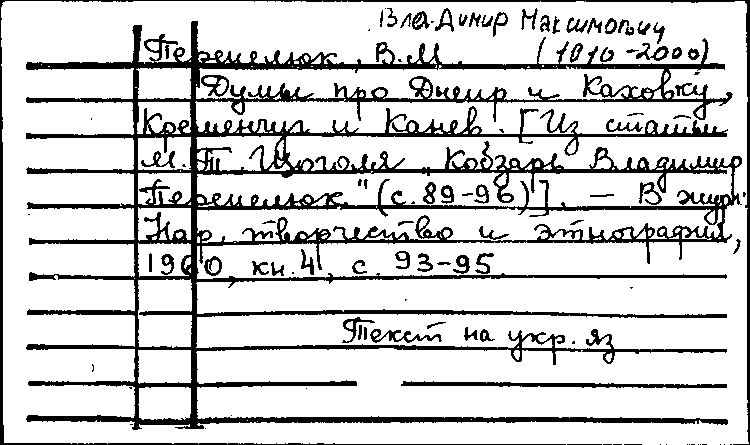 Владимир Максимович
Перепелюк, В.М. (1910-2000)
Думы про Днепр и Каховку,
Кременчуг и Канев. [Из статьи
М. Т. Щоголя „Кобзарь Владимир
Перепелюк" (с. 89-96)]. — В журн.:
Нар. творчество и этнография,
1960, кн. 4, с. 93-95.
Текст на укр. яз